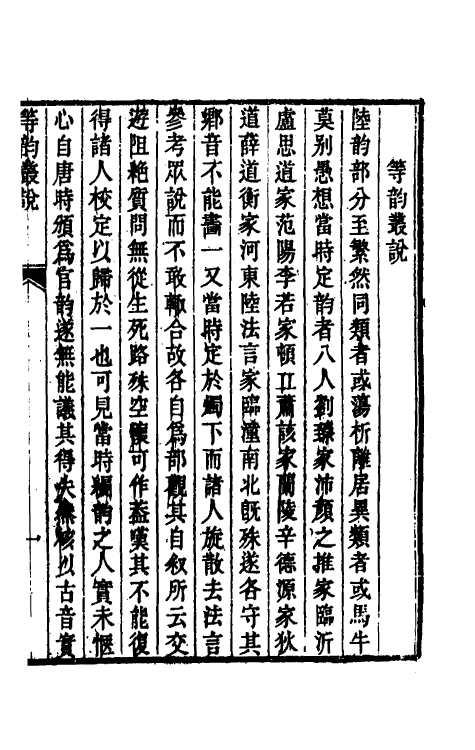 等韵叢說
陸韵部分至繁然同類者或蕩析離居異類者或馬牛
莫别愚想當時定韵者八人劉臻家沛顏之推家臨沂
盧思道家范陽李若家頓丘蕭該家蘭陵辛德源家狄
道薛道衡家河東陸法言家臨潼南北既殊遂各守其
鄉音不能畫一又當時定於燭下而諸人旋散去法言
參考眾說而不敢輙合故各自為部觀其自叙所云交
遊阻絶質問無從生死路殊空懷可作葢嘆其不能復
得諸人校定以歸於一也可見當時編韵之人實未愜
心自唐時頒為官韵遂無能議其得失無核以古音實
等韵叢說
一